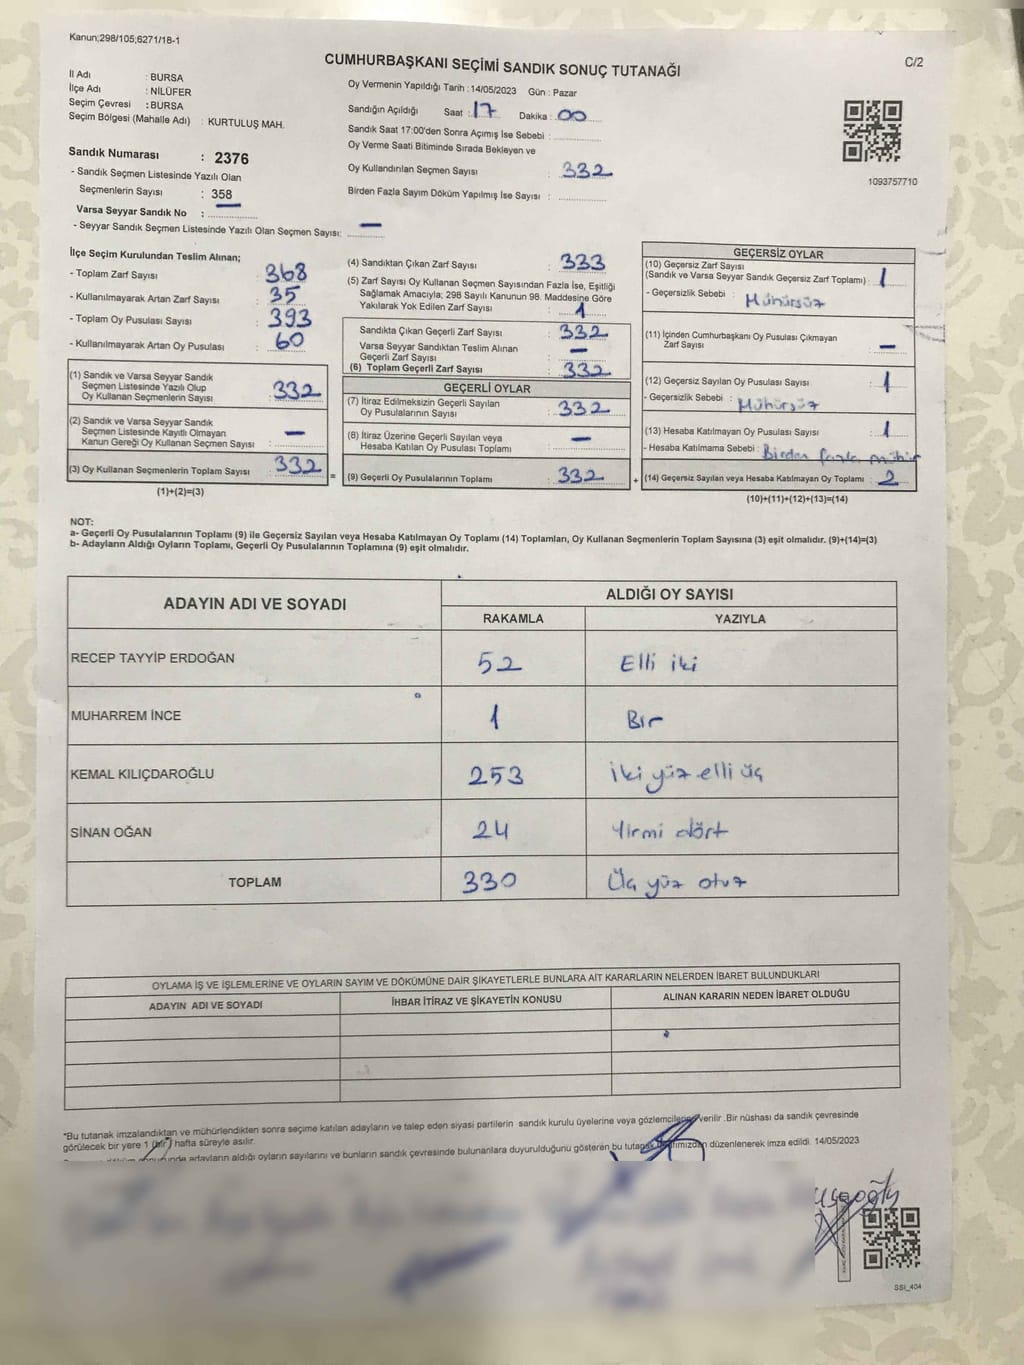 Kanun;298/105;6271/18-1
CUMHURBAŞKANI SEÇİMİ SANDIK SONUÇ TUTANAĞI
C/2
İl Adı : BURSA
İlçe Adı : NİLÜFER
Seçim Çevresi : BURSA
Seçim Bölgesi (Mahalle Adı) : KURTULUŞ MAH.
Sandık Numarası : 2376
- Sandık Seçmen Listesinde Yazılı Olan
Seçmenlerin Sayısı : 358
Varsa Seyyar Sandık No : —
- Seyyar Sandık Seçmen Listesinde Yazılı Olan Seçmen Sayısı: —
Oy Vermenin Yapıldığı Tarih : 14/05/2023 Gün : Pazar
Sandığın Açıldığı Saat : 17 Dakika : 00
Sandık Saat 17:00'den Sonra Açımış İse Sebebi :
Oy Verme Saati Bitiminde Sırada Bekleyen ve
Oy Kullandırılan Seçmen Sayısı : 332
Birden Fazla Sayım Döküm Yapılmış İse Sayısı :
1093757710
İlçe Seçim Kurulundan Teslim Alınan;
- Toplam Zarf Sayısı : 368
- Kullanılmayarak Artan Zarf Sayısı : 35
- Toplam Oy Pusulası Sayısı : 393
- Kullanılmayarak Artan Oy Pusulası : 60
(1) Sandık ve Varsa Seyyar Sandık
Seçmen Listesinde Yazılı Olup
Oy Kullanan Seçmenlerin Sayısı : 332
(2) Sandık ve Varsa Seyyar Sandık
Seçmen Listesinde Kayıtlı Olmayan
Kanun Gereği Oy Kullanan Seçmen Sayısı : —
(3) Oy Kullanan Seçmenlerin Toplam Sayısı : 332
(1)+(2)=(3)
=
(4) Sandıktan Çıkan Zarf Sayısı : 333
(5) Zarf Sayısı Oy Kullanan Seçmen Sayısından Fazla İse, Eşitliği
Sağlamak Amacıyla; 298 Sayılı Kanunun 98. Maddesine Göre
Yakılarak Yok Edilen Zarf Sayısı : 1
Sandıkta Çıkan Geçerli Zarf Sayısı : 332
Varsa Seyyar Sandıktan Teslim Alınan
Geçerli Zarf Sayısı : —
(6) Toplam Geçerli Zarf Sayısı : 332
GEÇERLİ OYLAR
(7) İtiraz Edilmeksizin Geçerli Sayılan
Oy Pusulalarının Sayısı : 332
(8) İtiraz Üzerine Geçerli Sayılan veya
Hesaba Katılan Oy Pusulası Toplamı : —
(9) Geçerli Oy Pusulalarının Toplamı : 332
+
GEÇERSİZ OYLAR
(10) Geçersiz Zarf Sayısı
(Sandık ve Varsa Seyyar Sandık Geçersiz Zarf Toplamı) : 1
- Geçersizlik Sebebi : Mühürsüz
(11) İçinden Cumhurbaşkanı Oy Pusulası Çıkmayan
Zarf Sayısı : —
(12) Geçersiz Sayılan Oy Pusulası Sayısı : 1
- Geçersizlik Sebebi : Mühürsüz
(13) Hesaba Katılmayan Oy Pusulası Sayısı : 1
- Hesaba Katılmama Sebebi : Birden fazla mühür
(14) Geçersiz Sayılan veya Hesaba Katılmayan Oy Toplamı : 2
(10)+(11)+(12)+(13)=(14)
NOT:
a- Geçerli Oy Pusulalarının Toplamı (9) ile Geçersiz Sayılan veya Hesaba Katılmayan Oy Toplamı (14) Toplamları, Oy Kullanan Seçmenlerin Toplam Sayısına (3) eşit olmalıdır. (9)+(14)=(3)
b- Adayların Aldığı Oyların Toplamı, Geçerli Oy Pusulalarının Toplamına (9) eşit olmalıdır.
ADAYIN ADI VE SOYADI
ALDIĞI OY SAYISI
RAKAMLA YAZIYLA
RECEP TAYYİP ERDOĞAN 52 Elli iki
MUHARREM İNCE 1 Bir
KEMAL KILIÇDAROĞLU 253 İki yüz elli üç
SİNAN OĞAN 24 Yirmi dört
TOPLAM 330 Üç yüz otuz
OYLAMA İŞ VE İŞLEMLERİNE VE OYLARIN SAYIM VE DÖKÜMÜNE DAİR ŞİKAYETLERLE BUNLARA AİT KARARLARIN NELERDEN İBARET BULUNDUKLARI
ADAYIN ADI VE SOYADI İHBAR İTİRAZ VE ŞİKAYETİN KONUSU ALINAN KARARIN NEDEN İBARET OLDUĞU
"Bu tutanak imzalandıktan ve mühürlendikten sonra seçime katılan adayların ve talep eden siyasi partilerin sandık kurulu üyelerine veya gözlemcilerine verilir .Bir nüshası da sandık çevresinde
görülecek bir yere 1 (bir) hafta süreyle asılır.
adayların aldığı oyların sayılarını ve bunların sandık çevresinde bulunanlara duyurulduğunu gösteren bu tutanak düzenlenerek imza edildi. 14/05/2023
SSI_404